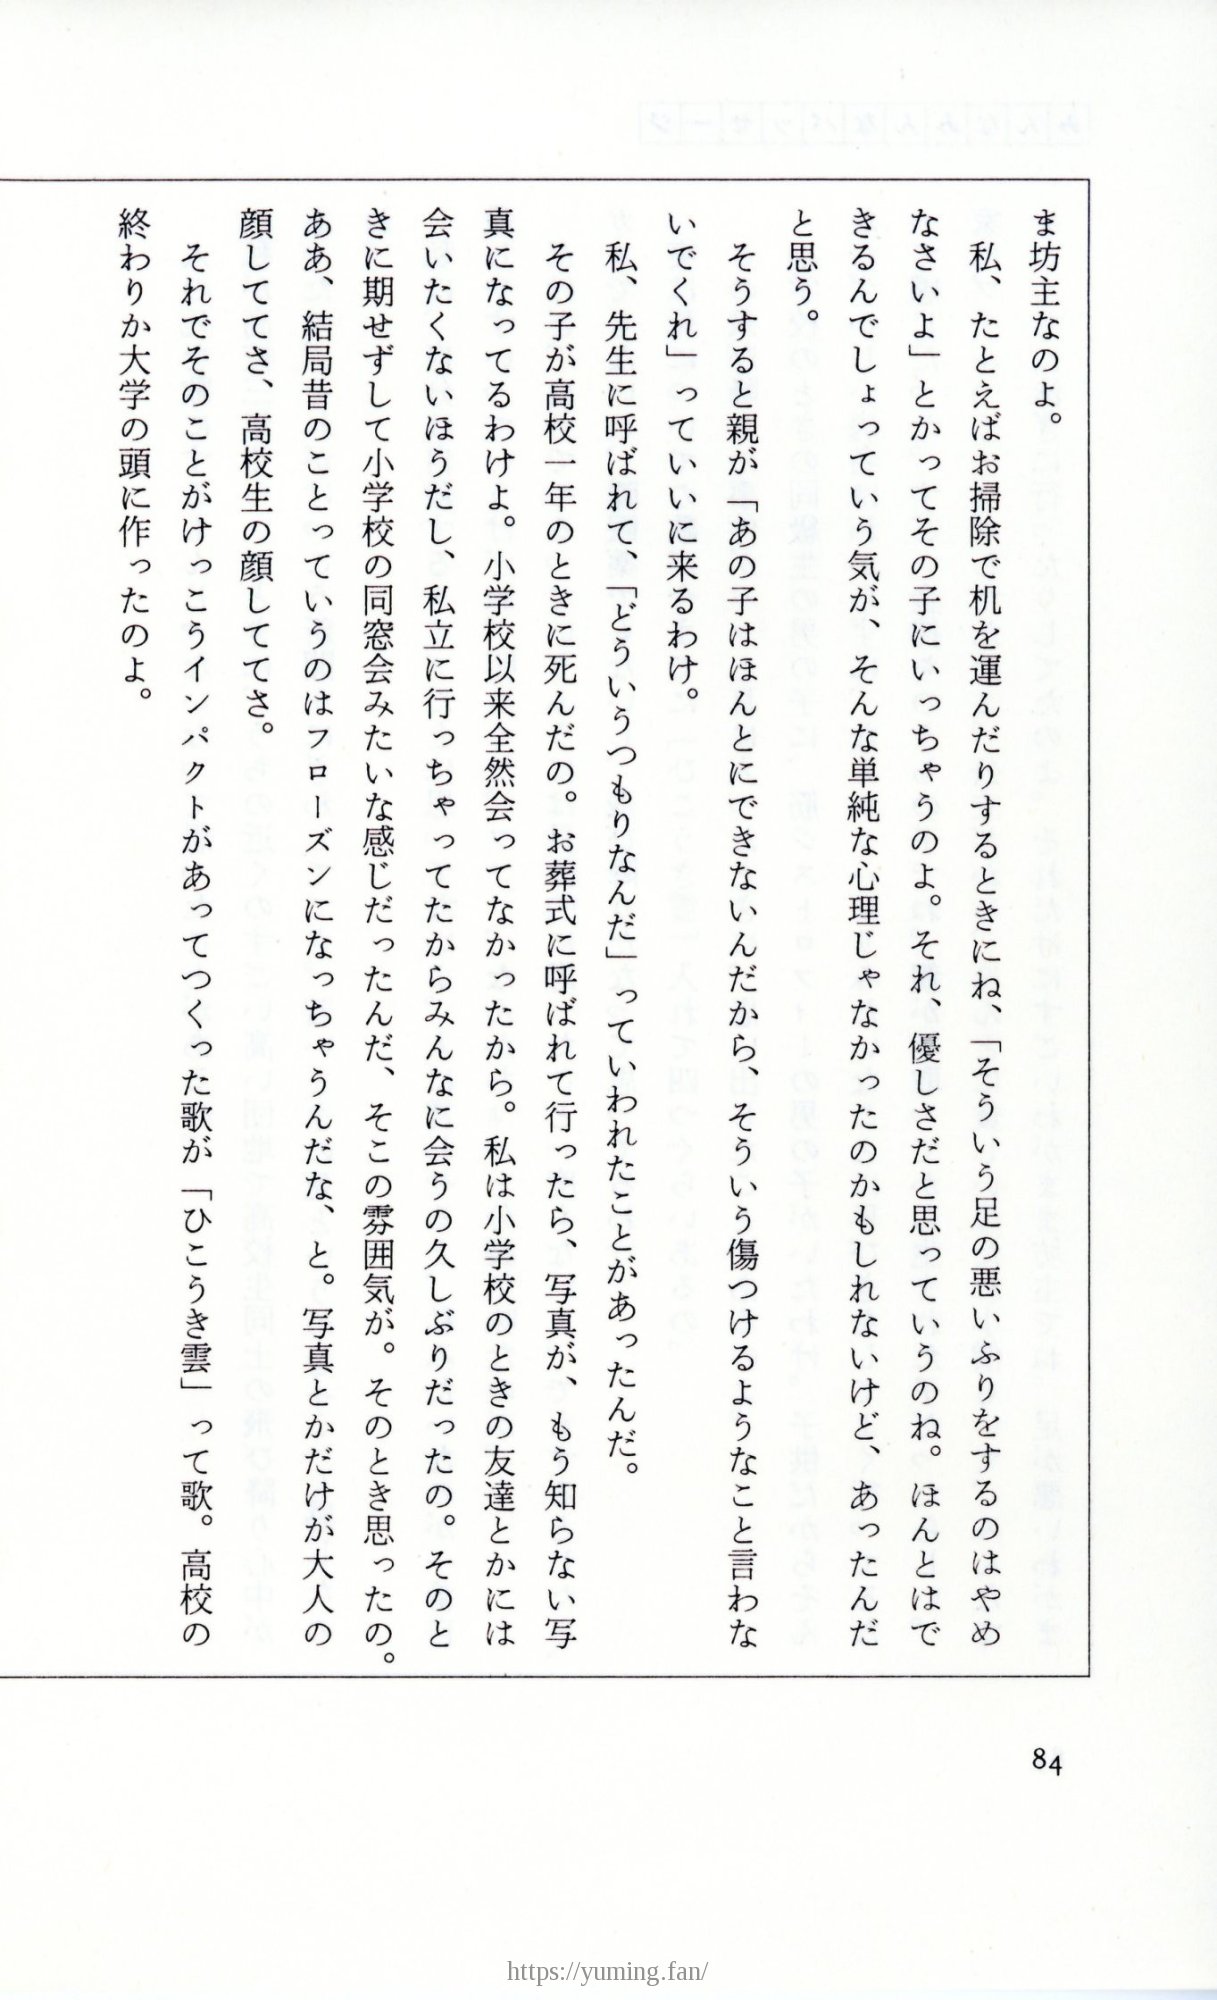 ま坊主なのよ。
私、たとえばお掃除で机を運んだりするときにね、「そういう足の悪いふりをするのはやめ
なさいよ」とかってその子にいっちゃうのよ。それ、優しさだと思っていうのね。ほんとはで
きるんでしょっていう気が、そんな単純な心理じゃなかったのかもしれないけど、あったんだ
と思う。
そうすると親が「あの子はほんとにできないんだから、そういう傷つけるようなこと言わな
いでくれ」っていいに来るわけ。
私、先生に呼ばれて、「どういうつもりなんだ」っていわれたことがあったんだ。
その子が高校一年のときに死んだの。お葬式に呼ばれて行ったら、写真が、もう知らない写
真になってるわけよ。小学校以来全然会ってなかったから。私は小学校のときの友達とかには
会いたくないほうだし、私立に行っちゃってたからみんなに会うの久しぶりだったの。そのと
きに期せずして小学校の同窓会みたいな感じだったんだ、そこの雰囲気が。そのとき思ったの。
ああ、結局昔のことっていうのはフローズンになっちゃうんだな、と。写真とかだけが大人の
顔しててさ、高校生の顔しててさ。
それでそのことがけっこうインパクトがあってつくった歌が「ひこうき雲」って歌。高校の
終わりか大学の頭に作ったのよ。
84
https://yuming.fan/